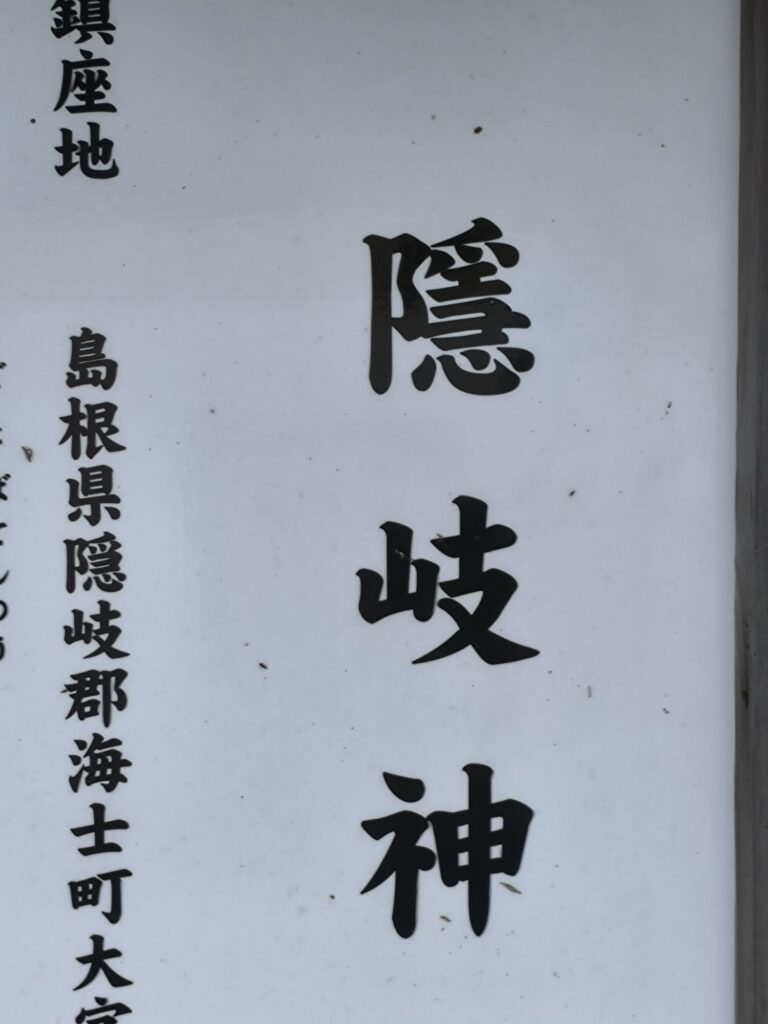 隠岐神
鎮座地 島根県隠岐郡海士町大字